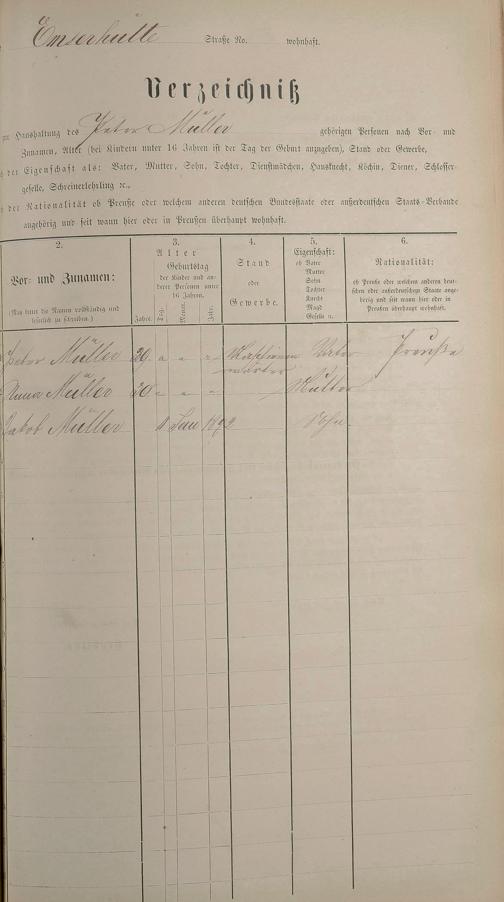 Emserhütte Straße No. wohnhaft.
Verzeichniß
Haushaltung des Peter Müller gehörigen Personen nach Vor- und
Zunamen, Alter (bei Kindern unter 16 Jahren ist der Tag der Geburt anzugeben), Stand oder Gewerbe,
der Eigenschaft als: Vater, Mutter, Sohn, Tochter, Dienstmädchen, Hausknecht, Köchin, Diener, Schlosser-
geselle, Schreinerlehrling ꝛc.,
der Nationalität ob Preuße oder welchem anderen deutschen Bundesstaate oder außerdeutschen Staats-Verbande
angehörig und seit wann hier oder in Preußen überhaupt wohnhaft.
2. 3. 4. 5. 6.
Vor- und Zunamen:
(Man bittet die Namen vollständig und
leserlich zu schreiben.)
Alter
Geburtstag
der Kinder und an-
derer Personen unter
16 Jahren.
Jahre. Tag. Monat. Jahr.
Stand
oder
Gewerbe.
Eigenschaft:
ob Vater
Mutter
Sohn
Tochter
Knecht
Magd
Geselle u.
Nationalität:
ob Preuße oder welchem anderen deut-
schen oder außerdeutschen Staate ange-
hörig und seit wann hier oder in
Preußen überhaupt wohnhaft.
Peter Müller 29 Maschinen Vater Preuße
wärter
Anna Müller Mutter
Jakob Müller Sohn